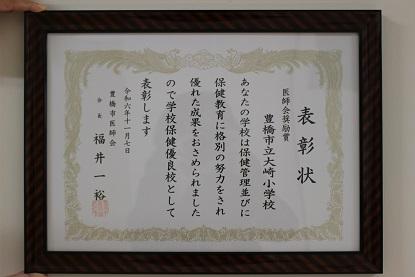 表彰状
医師会奨励賞
豊橋市立大崎小学校
あなたの学校は保健管理並びに
保健教育に格別の努力をされ
優れた成果をおさめられました
ので学校保健優良校として
表彰します
令和六年十一月七日
豊橋市医師会
会長 福井一裕